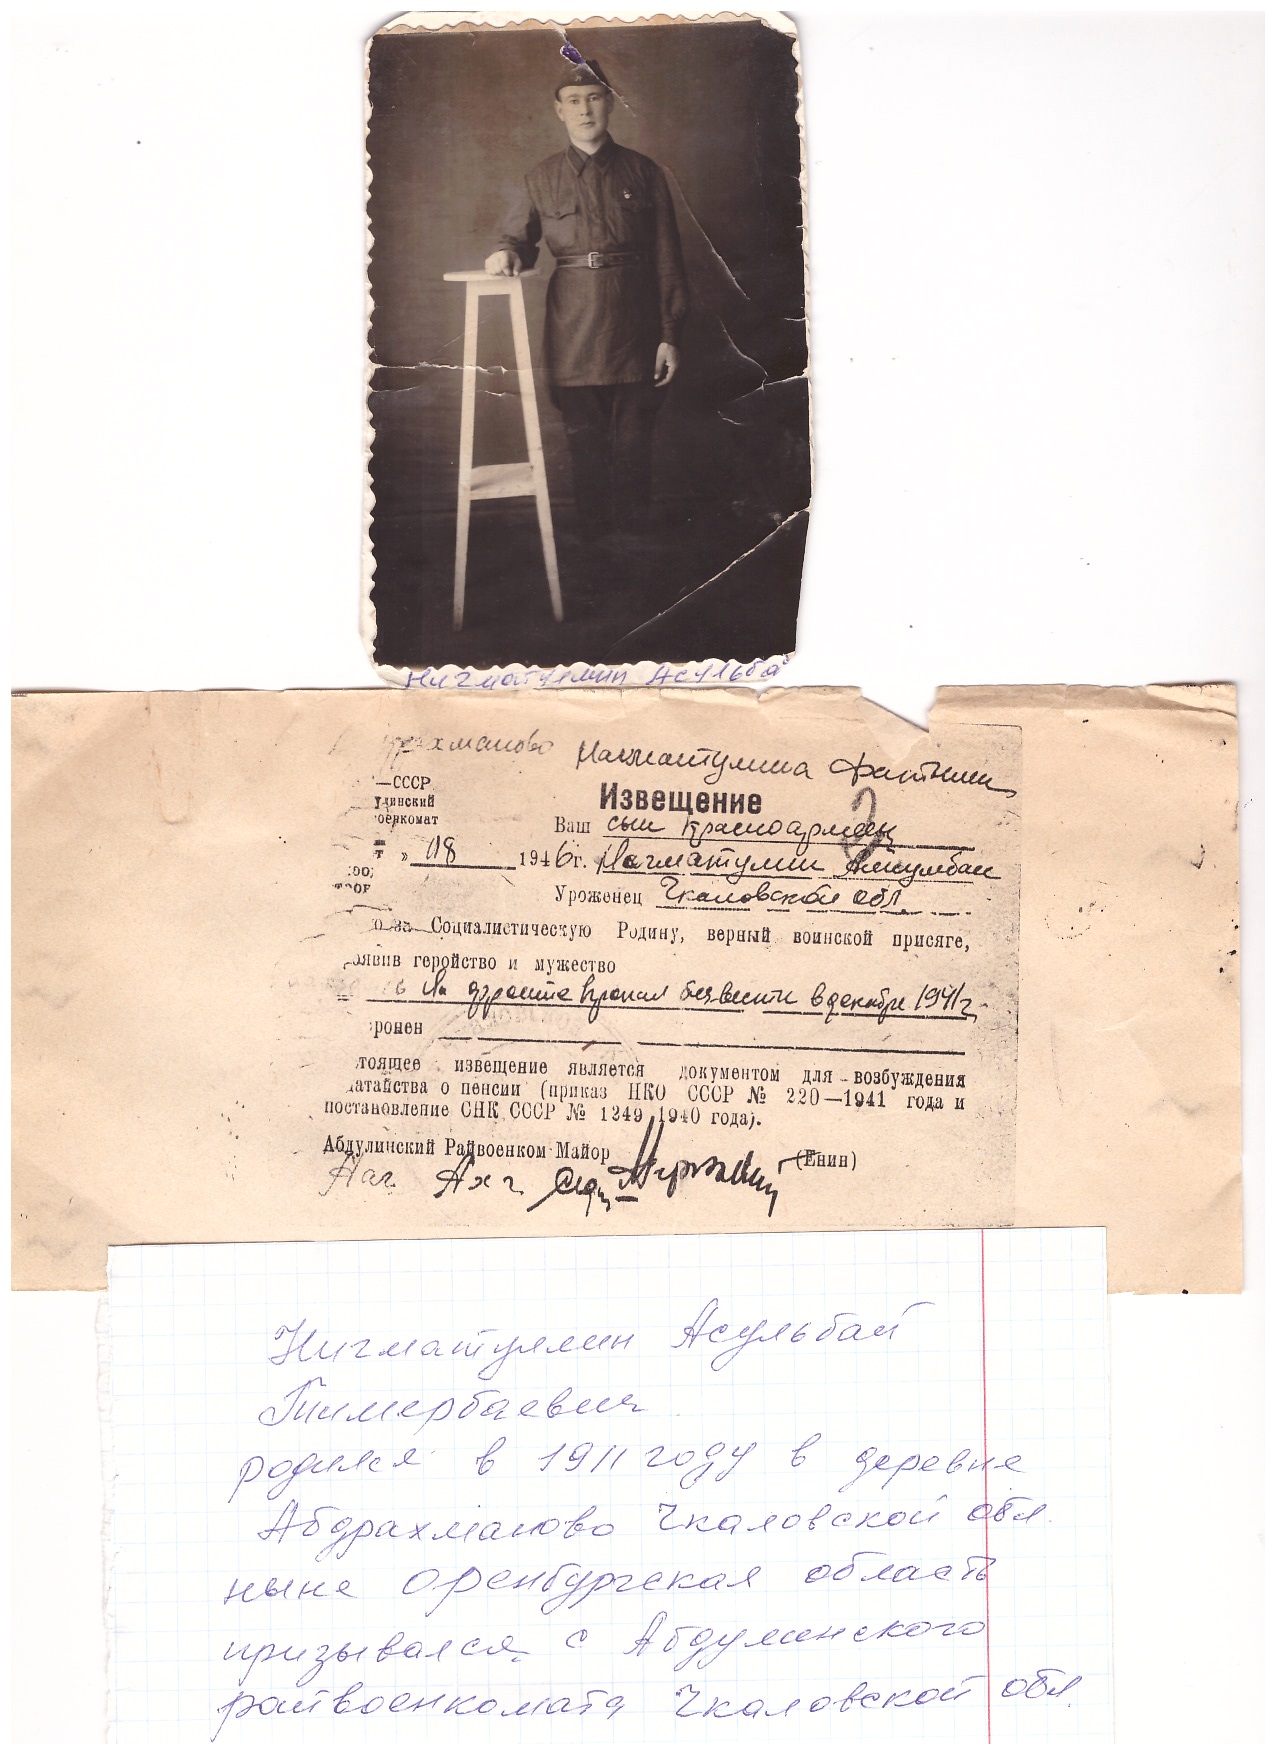 Нигматуллин Асульбай
Нагматулина
Извещение
—СССР
Ваш сын красноармеец
» 08 1946 г. Нагматулин
Уроженец Чкаловской обл.
за Социалистическую Родину, верный воинской присяге,
оявив геройство и мужество
На фронте пропал без вести в декабре 1941 г.
ронен
тоящее извещение является документом для возбуждения
датайства о пенсии (приказ НКО СССР № 220—1941 года и
постановление СНК СССР № 1249 1940 года).
Абдулинский Райвоенком Майор (Енин)
Нигматуллин Асульбай
Тимербаевич
родился в 1911 году в деревне
Абдрахманово Чкаловской обл.
ныне Оренбургская область
призывался с Абдулинского
райвоенкомата Чкаловской обл.